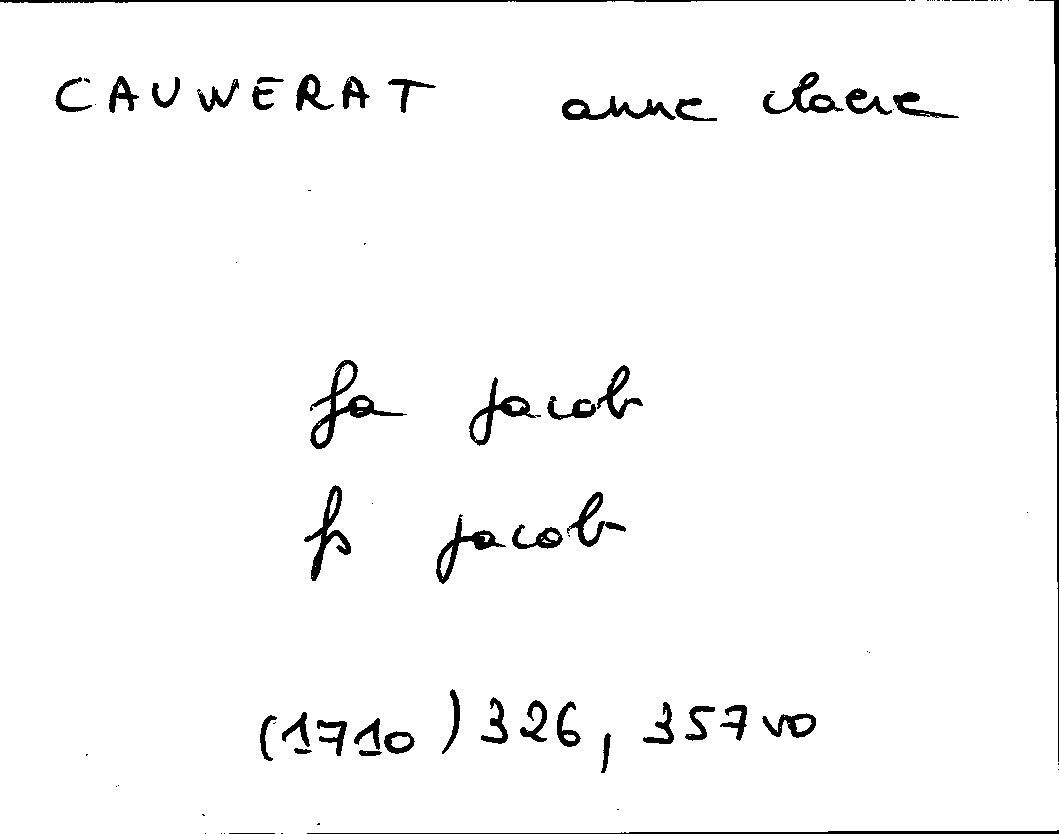 CAUWERAT anne claere
fa jacob
fs jacob
(1710) 326, 357 vo